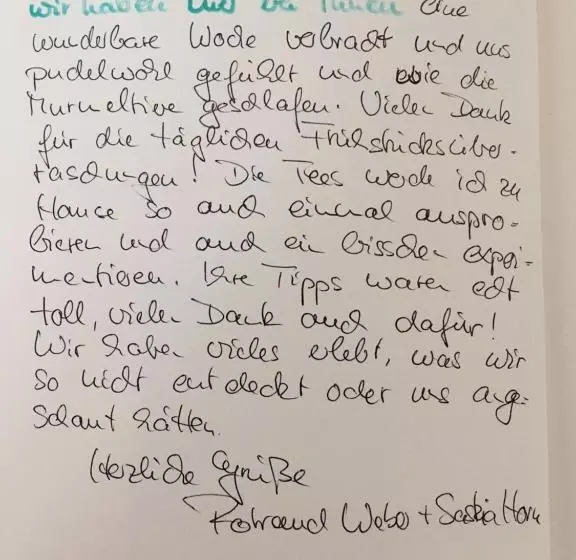 wir haben uns bei Ihnen eine
wunderbare Woche verbracht und uns
pudelwohl gefühlt und wie die
Murmeltiere geschlafen. Vielen Dank
für die täglichen Frühstücksüber-
raschungen! Die Tees werde ich zu
Hause so auch einmal auspro-
bieren und auch ein bisschen experi-
mentieren. Ihre Tipps waren echt
toll, vielen Dank auch dafür!
Wir haben vieles erlebt, was wir
so nicht entdeckt oder uns ang-
schaut hätten.
Herzliche Grüße
Weber + Saskia Horn